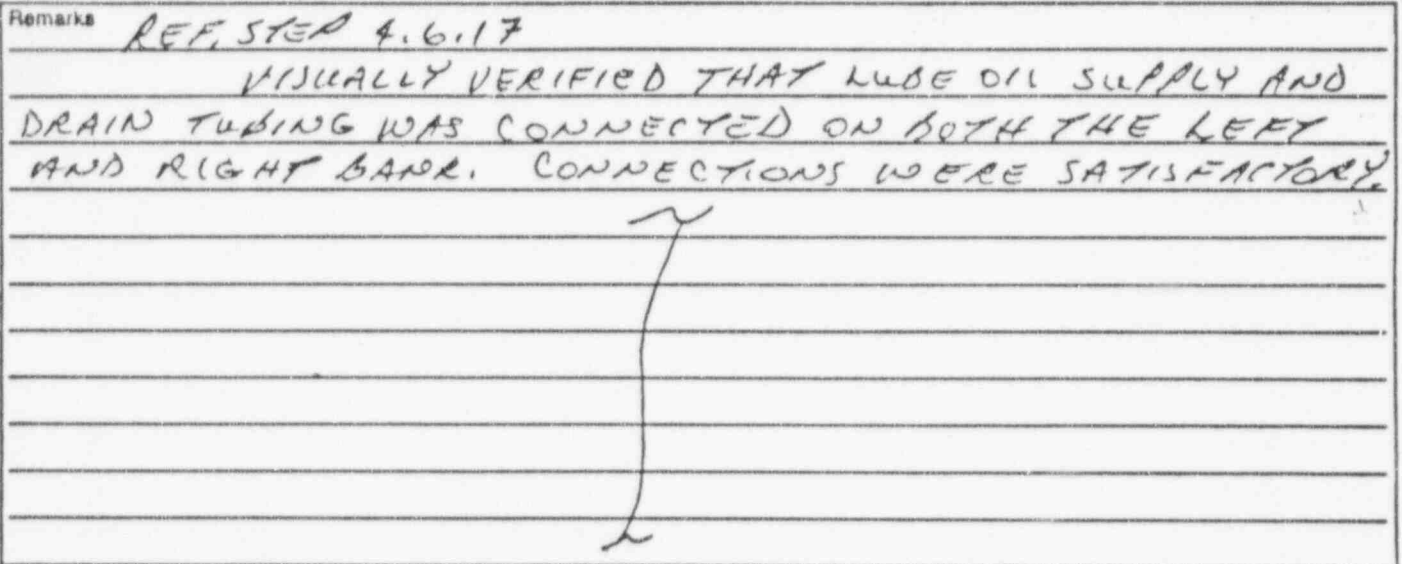 Remarks REF. STEP 4.6.17
VISUALLY VERIFIED THAT LUBE OIL SUPPLY AND
DRAIN TUBING WAS CONNECTED ON BOTH THE LEFT
AND RIGHT BANK. CONNECTIONS WERE SATISFACTORY.